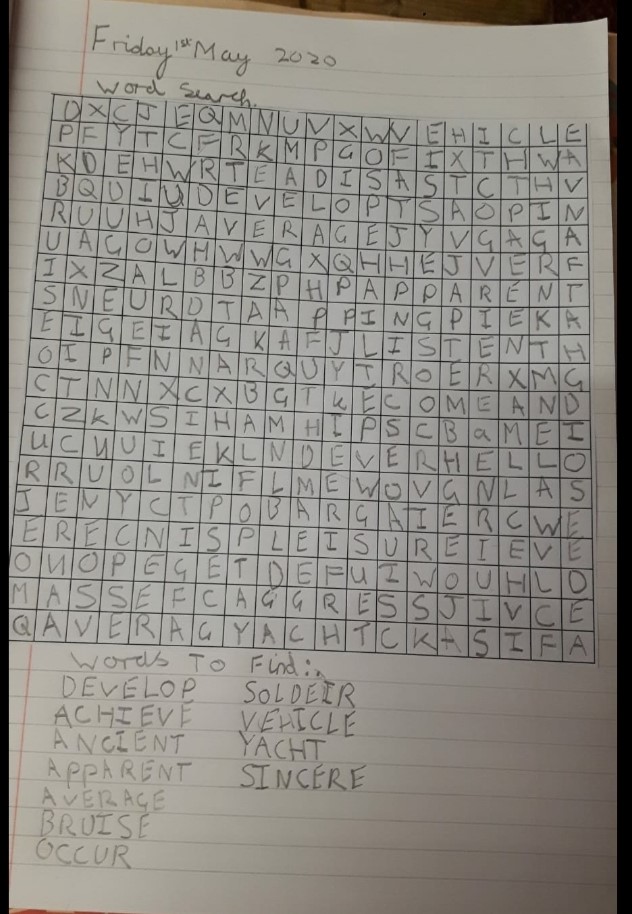 Friday 1st May 2020
Word Search.
D X C J E Q M N U V X W V E H I C L E
P F Y T C F R K M P G O F I X T H W A
K D E H W R T E A D I S A S T C T H V
B Q U I U D E V E L O P T S A O P I N
R U U H J A V E R A G E J Y V G A G A
U A G O W H W W G X Q H H E J V E R F
I X Z A L B B Z P H P A P P A R E N T
S N E U R D T A A P P I N G P I E K A
E I G E I A G K A F J L I S T E N T H
O I P F N N A R Q U Y T R O E R X M G
C T N N X C X B G T K E C O M E A N D
C Z K W S I H A M H I P S C B a M E I
U C U U I E K L N D E V E R H E L L O
R R U O L N I F L M E W O V G N L A S
J E N Y C T P O B A R G A I E R C W E
E R E C N I S P L E I S U R E I E V E
O U O P E G E T D E F U I W O U H L D
M A S S E F C A G G R E S S J I V C E
Q A V E R A G Y A C H T C K A S I F A
Words To Find:
DEVELOP SOLDEIR
ACHIEVE VEHICLE
ANCIENT YACHT
APPARENT SINCERE
AVERAGE
BRUISE
OCCUR